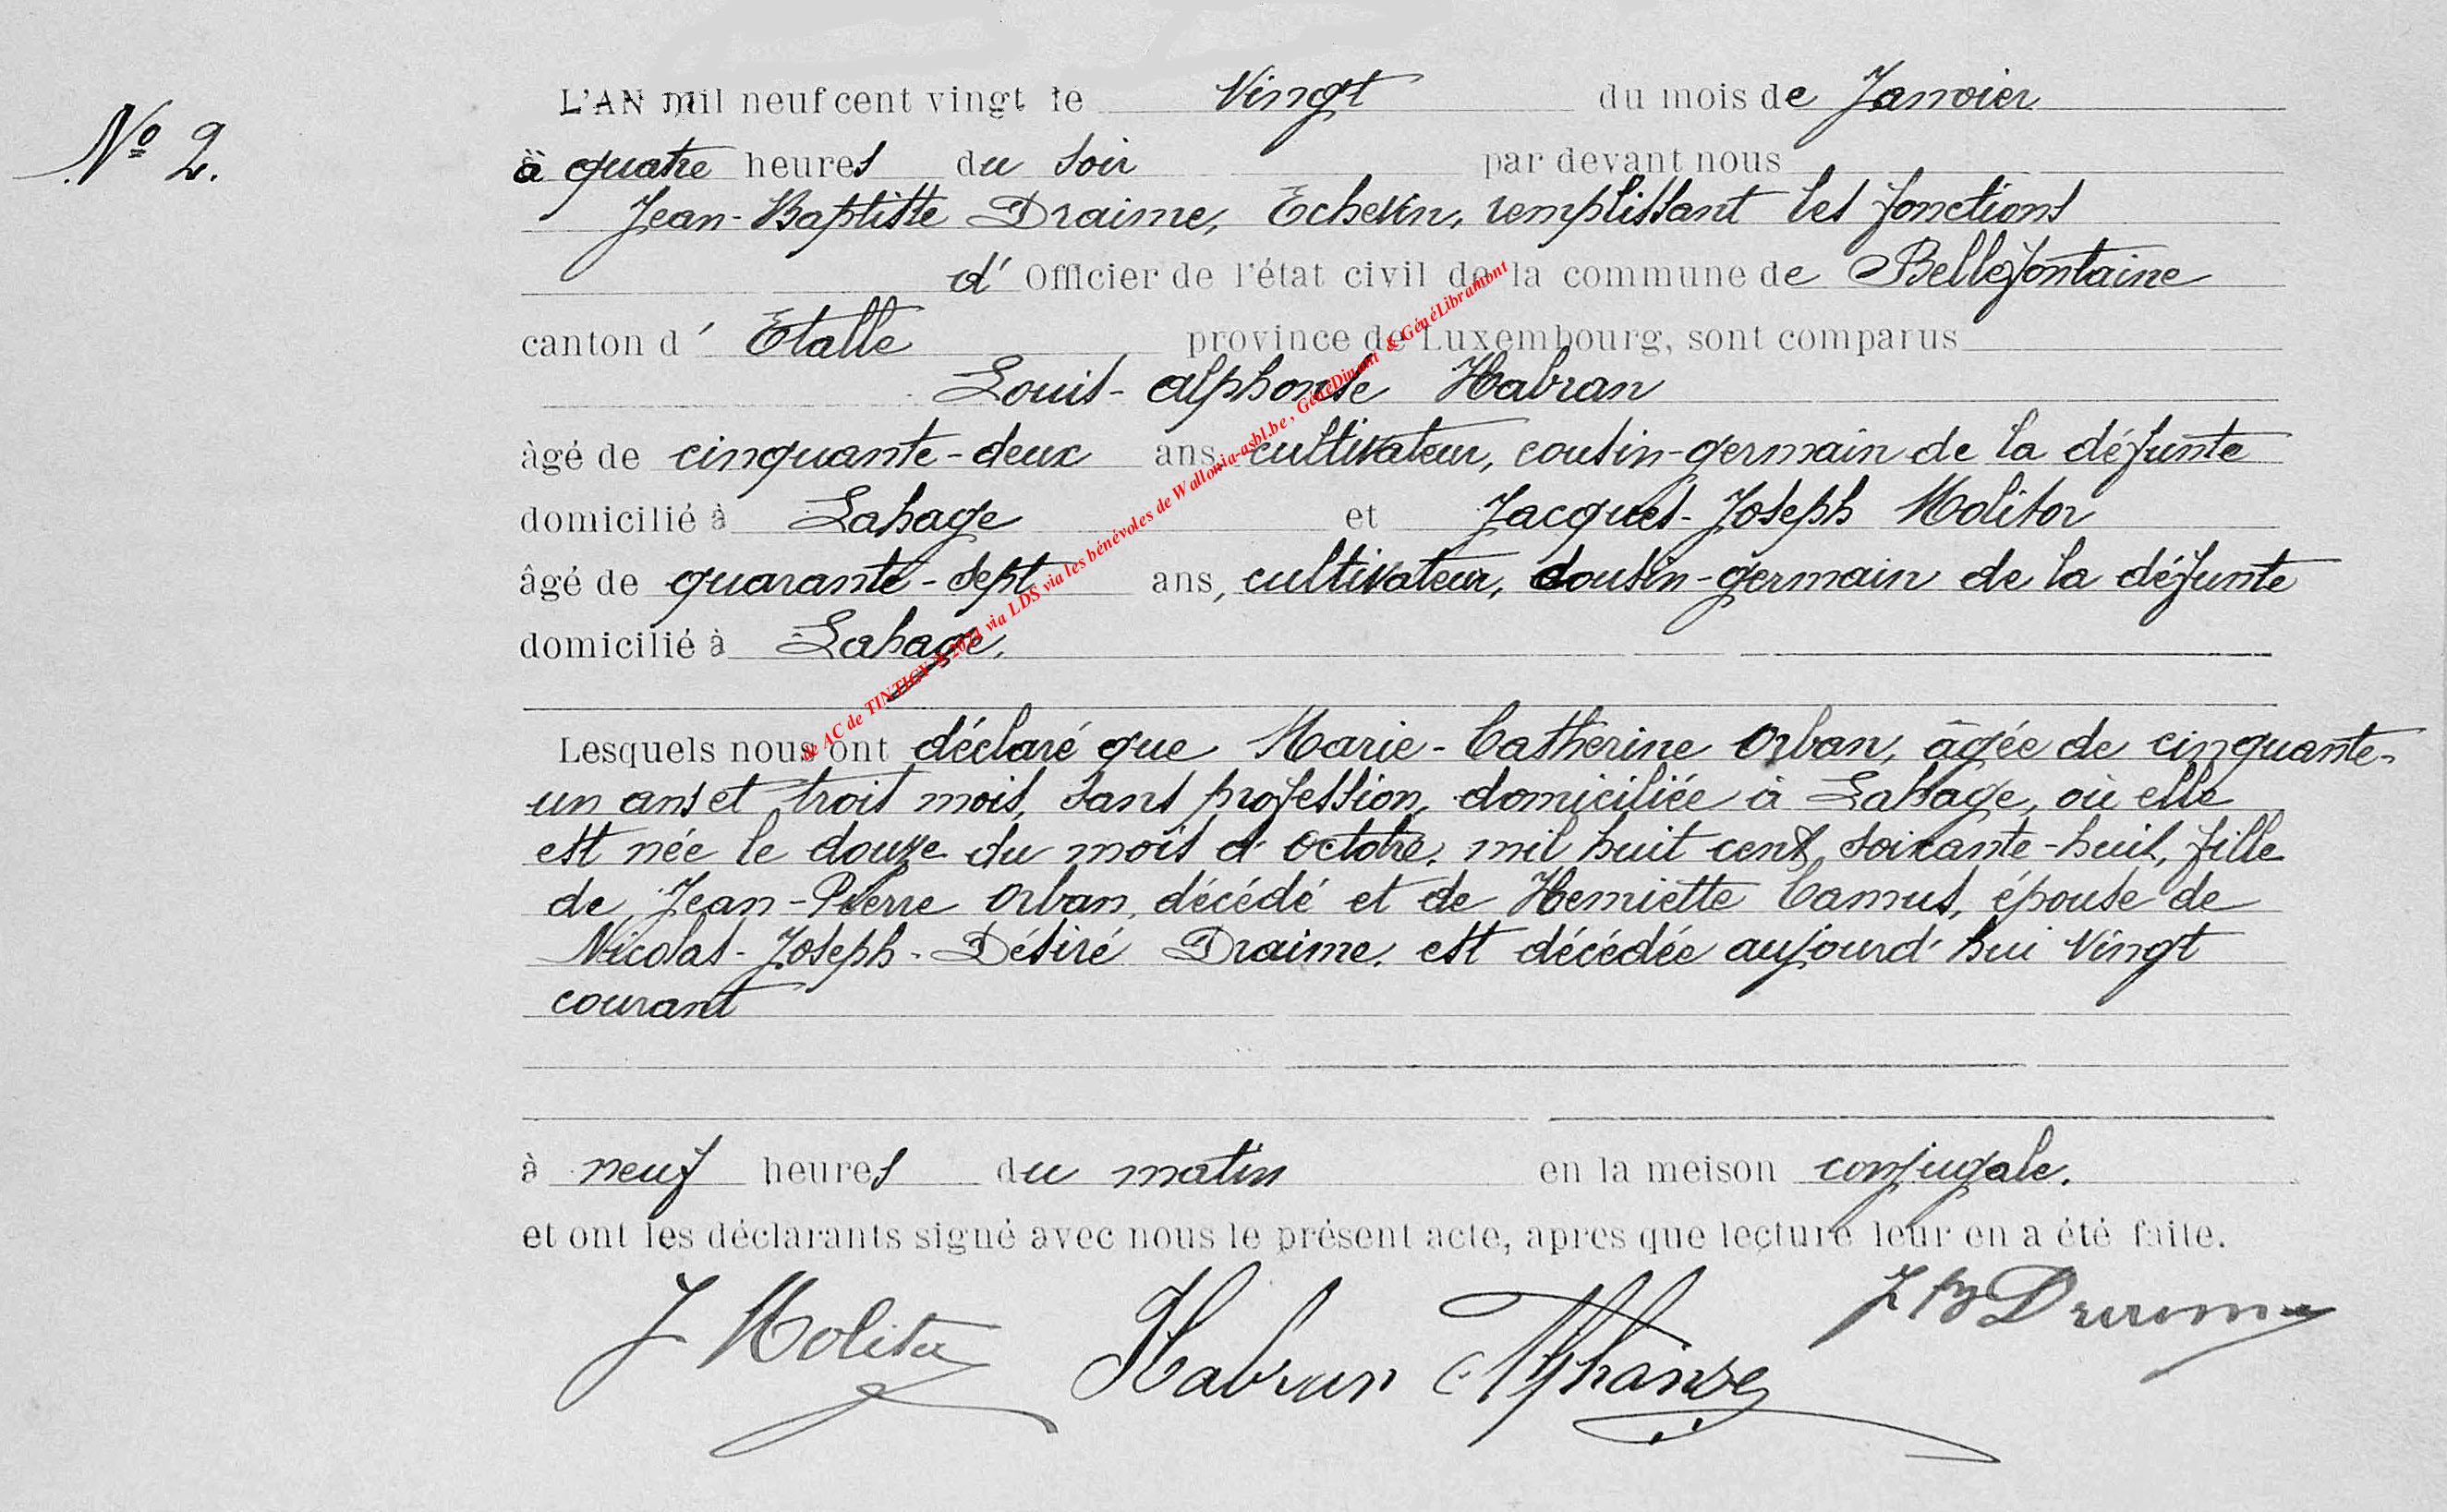 L'AN mil neuf cent vingt le Vingt du mois de Janvier
No 2.
à quatre heures du soir par devant nous
Jean-Baptiste Draime, Echevin, remplissant les fonctions
d' Officier de l'état civil de la commune de Bellefontaine
canton d' Etalle province de Luxembourg, sont comparus
Louis-Alphonse Habran
âgé de cinquante-deux ans, cultivateur, cousin-germain de la défunte
domicilié à Lahage et Jacques-Joseph Molitor
âgé de quarante-sept ans, cultivateur, cousin-germain de la défunte
domicilié à Lahage.
& AC de TINTIGNY © 2021 via LDS via les bénévoles de Wallonia-asbl.be, GénéDinant & GénéLibramont
Lesquels nous ont déclaré que Marie-Catherine Orban, âgée de cinquante-
un ans et trois mois, sans profession, domiciliée à Lahage, où elle
est née le douze du mois d'octobre, mil huit cent soixante-huit, fille
de Jean-Pierre Orban, décédé et de Henriette Camus, épouse de
Nicolas-Joseph-Désiré Draime, est décédée aujourd'hui vingt
courant
à neuf heures du matin en la meison conjugale.
et ont les déclarants signé avec nous le présent acte, apres que lecture leur en a été faite.
J Molitor Habran Alphonse J B Draime